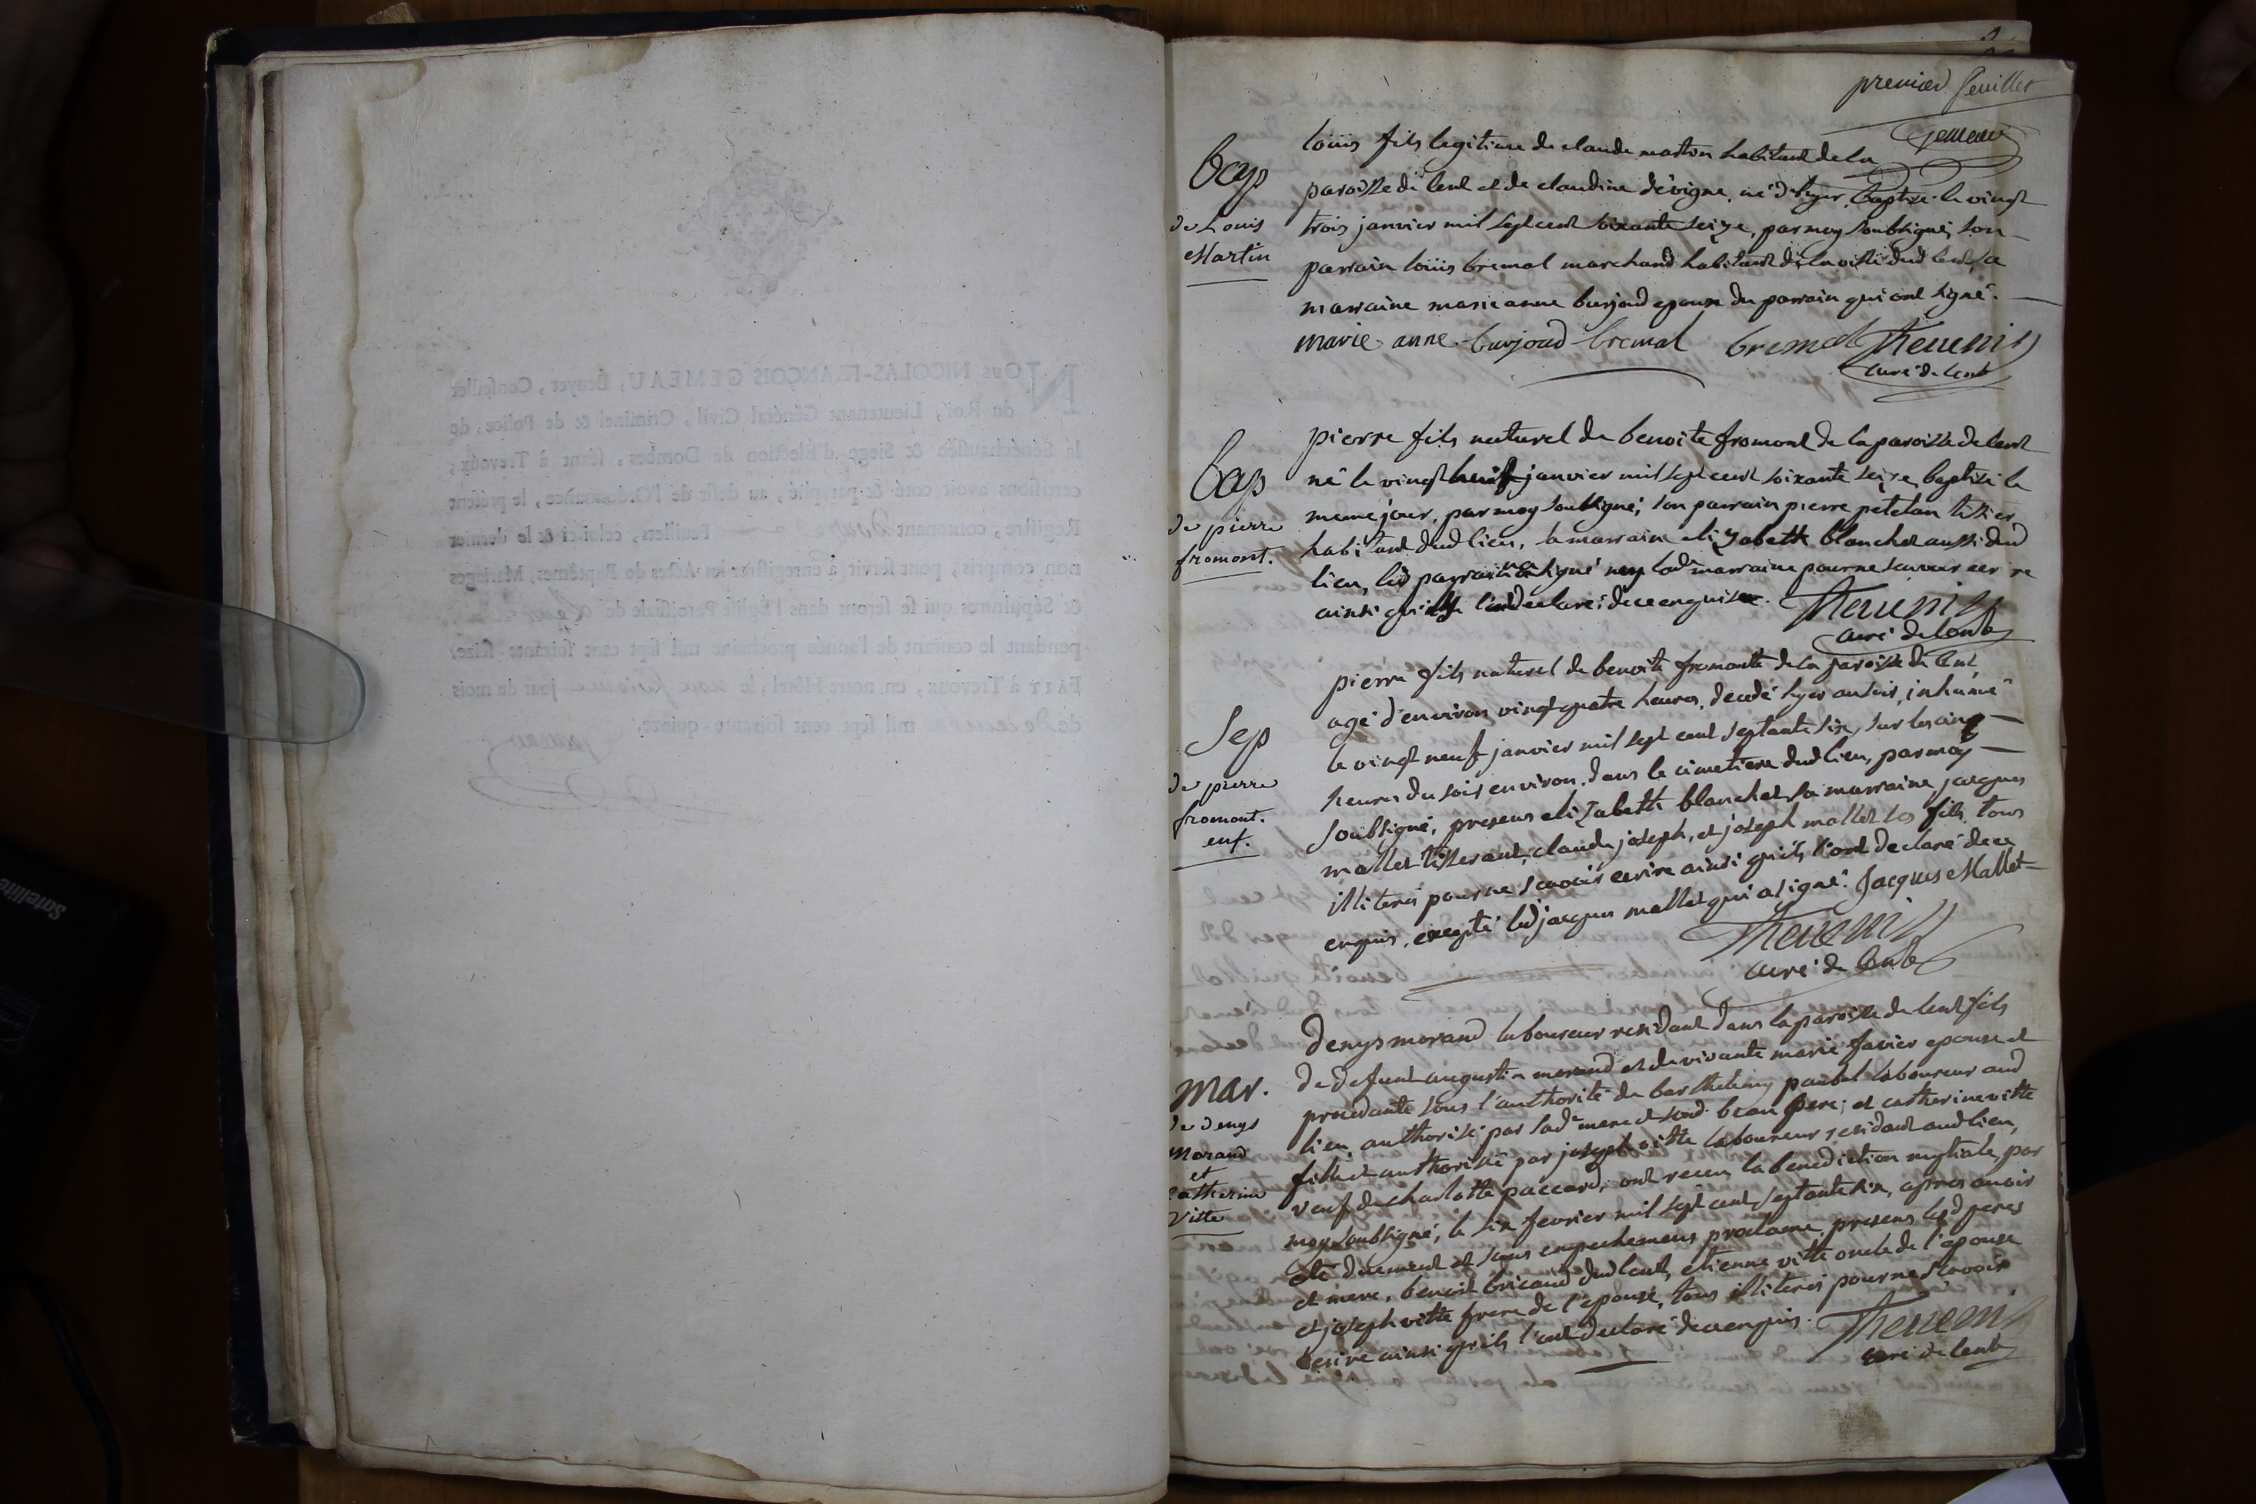 premier feuillet
Gemeau
Bap
de Louis
Martin
loüis fils legitime de claude martin habitant de la
paroisse de lent et de claudine dévigne, né d'hyer, baptisé le vingt
trois janvier mil sept cent soixante seize, par moy soubsigné, son
parrain loüis bremal marchand habitant de la ville dud lent, sa
marraine marie anne burjoud epouse du parrain qui ont signé.
marie anne burjoud bremal bremal Thevenin
curé de lent
bap
de pierre
fromont.
pierre fils naturel de benoite fromont de la paroisse de lent
né le vingt huit janvier mil sept cent soixante seize, baptisé le
meme jour, par moy soubsigné; son parrain pierre petelan tissier
habitant dud lieu, la marraine elizabeth blanchet aussi dud
lieu, led parrain na signé ny lad marraine pour ne scavoir
ainsi declaré; de ce enquise. Thevenin
curé de lent
Sep
de pierre
fromont.
enf.
pierre fils naturel de benoite fromonte de la paroisse de lent
agé d'environ vingt quatre heures, decedé hyer au soir, inhumé
le vingt neuf janvier mil sept cent septante six, sur les cinq
heures du soir environ, dans le cimetiere dud lieu, par moy
soubsigné, presens elizabeth blanchet sa marraine, jacques
mallet tisserant, claude joseph, et joseph mallet ses fils, tous
illiterés pour ne scavoir ecrire ainsi qu'ils l'ont declaré de ce
enquis, excepté led jacques mallet qui a signé. Jacques Mallet
Thevenin
curé de lent
Mar.
de denys
Morand
et
Catherine
Vitte
Denys morand laboureur residant dans la paroisse de lent fils
de defunt augustin morand et de vivante marie favier epouse et
procedante sous l'authorité de barthelemy paubel laboureur aud
lien, authorisé par sad mere et sond beau pere; et catherine vitte
fille et authorisée par joseph vitte laboureur residant aud lieu,
veuf de charlotte paccard, ont receu la benediction nuptiale, par
moy soubsigné, le six fevrier mil sept cent septante six, apres avoir
eté duement et sans empechemens proclamé, presens lesd peres
et mere, benoit bricaud dud lent, etienne vitte oncle de l'epouse
et joseph vitte frere de l'epouse, tous illiterés pour ne scavoir
ecrire ainsi qu'ils l'ont declaré de ce enquis. Thevenin
curé de lent
NOUS NICOLAS-FRANÇOIS GEMEAU, Écuyer, Conseiller
du Roi, Lieutenant Général Civil, Criminel & de Police, de
la Sénéchaussée & Siege d'Élection de Dombes, séant à Trevoux;
certifions avoir coté & paraphé, au desir de l'Ordonnance, le présent
Registre, contenant douze Feuillets, celui-ci & le dernier
non compris, pour servir à enregistrer les Actes de Baptêmes, Mariages
& Sépultures qui se feront dans l'Église Paroissiale de
pendant le courant de l'année prochaine mil sept cent soixante-seize.
FAIT à Trevoux, en notre Hôtel, le jour du mois
de decembre mil sept cent soixante-quinze.
Gemeau
Satellite